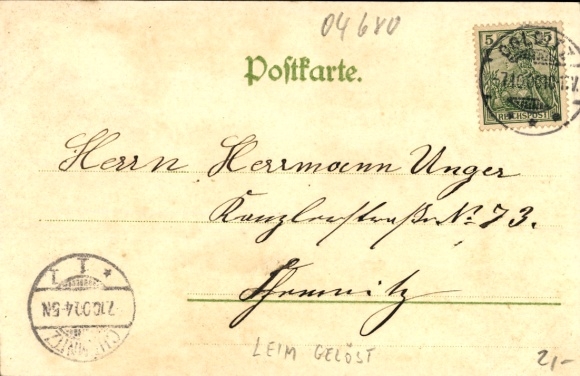 04680
Postkarte.
5
REICHSPOST
Herrn Herrmann Unger
Kanzlerstraße No 73.
Chemnitz
7.10.00.4-5N
CHEMNITZ
LEIM GELÖST
21,-